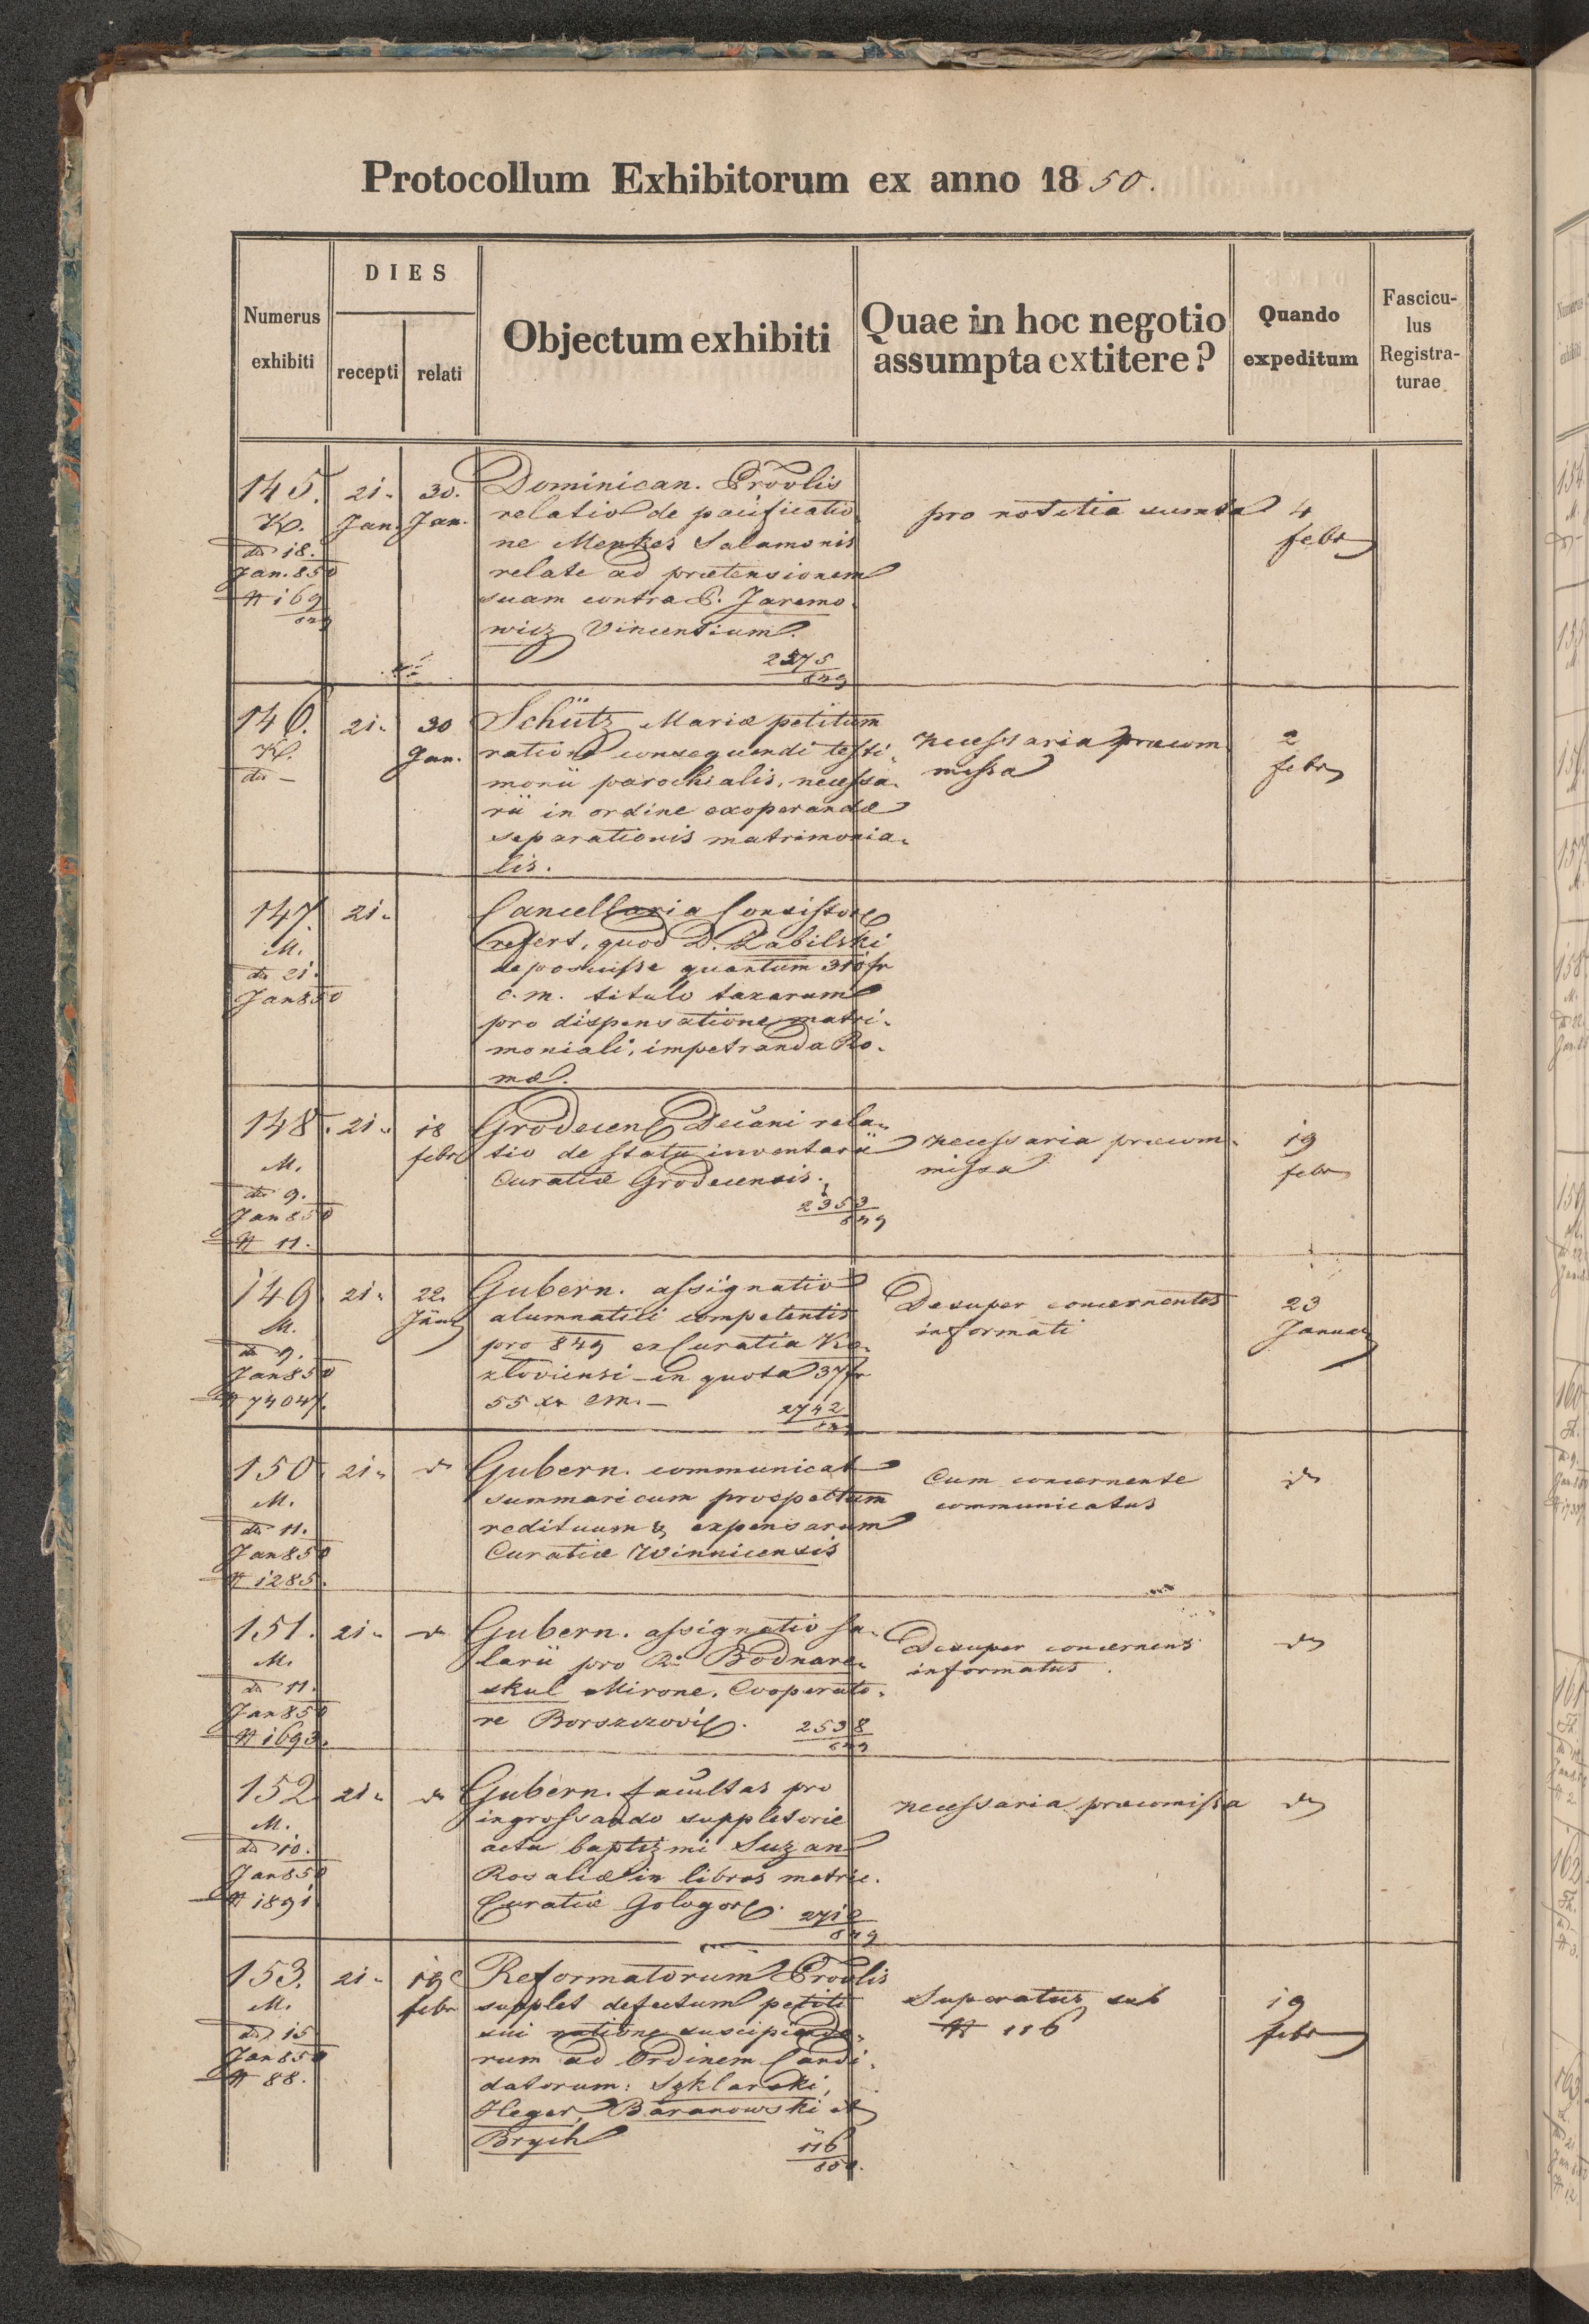 Protocollum Exhibitorum ex anno 1850.
Numerus exhibiti
DIES
recepti
relati
Objectum exhibiti
Quae in hoc negotio
assumpta extitere?
Quando
expeditum
Fascicu-
lus
Registra-
turae
145.
K.
dto 18.
Jan. 850
N 169
849
21.
Jan.
30.
Jan.
Dominican. Provlis
relatio de pacificatio
ne Menkes Salamonis
relate ad prætensionem
suam contra P. Jaremo
wicz Vincentium.
2275
849
pro notitia sumta
4
febr
146.
K.
dto –
21.
30
Jan.
Schütz Mariæ petitum
ratione consequendi testi.
monii parochialis, necessa.
rii in ordine exoperandæ
separationis matrimonia.
lis.
necessaria præcom
missa
2
febr
147.
M.
dto 21.
Jan 850
21.
Cancellaria Consistor
refert, quod D. Zabilski
deposuisse quantum 310 fr
c.m. titulo taxarum
pro dispensatione matri.
moniali, impetranda Ro.
mæ.
148.
M.
dto 9.
Jan 850
N 11.
21.
18
febr
Grodecens Decani rela.
tio de statu inventarii
Curatiæ Grodecensis.
2353
849
necessaria præcom.
missa
19
febr
149.
M.
dto 9.
Jan 850
N 74047.
21.
22.
Jan
Gubern. assignatio
alumnatici competentis
pro 849 ex Curatia Ko.
zloviensi in quota 37 fr
55 xr cm. –
2742
849
Desuper concernentes
informati
23
Januar
150.
M.
dto 11.
Jan 850
N 1285.
21.
dto
Gubern. communicat
summaricum prospectum
redituum & expensarum
Curatiæ Winnicensis
Cum concernente
communicatus
dto
151.
M.
dto 11.
Jan 850
N 1693.
21.
dto
Gubern. assignatio sa.
larii pro R. Bodnare.
skul Mirone, Cooperato.
re Borszczovi.
2538
849
Desuper concernens
informatus.
dto
152
M.
dto 10.
Jan 850
N 1891
21.
dto
Gubern. facultas pro
ingrossando suppletorie
actu baptizmi Suzan
Rosaliæ in libros metric.
Curatiæ Gologor.
2712
849
necessaria præcomissa
dto
153.
M.
dto 15
Jan 850
N 88.
21.
19
febr
Reformatorum Provlis
supplet defectum petiti
sui ratione suscipiendo.
rum ad Ordinem Candi.
datorum: Szklarski,
Heger, Baranowski et
Brych
116
850.
Superatus sub
N 116
19
febr